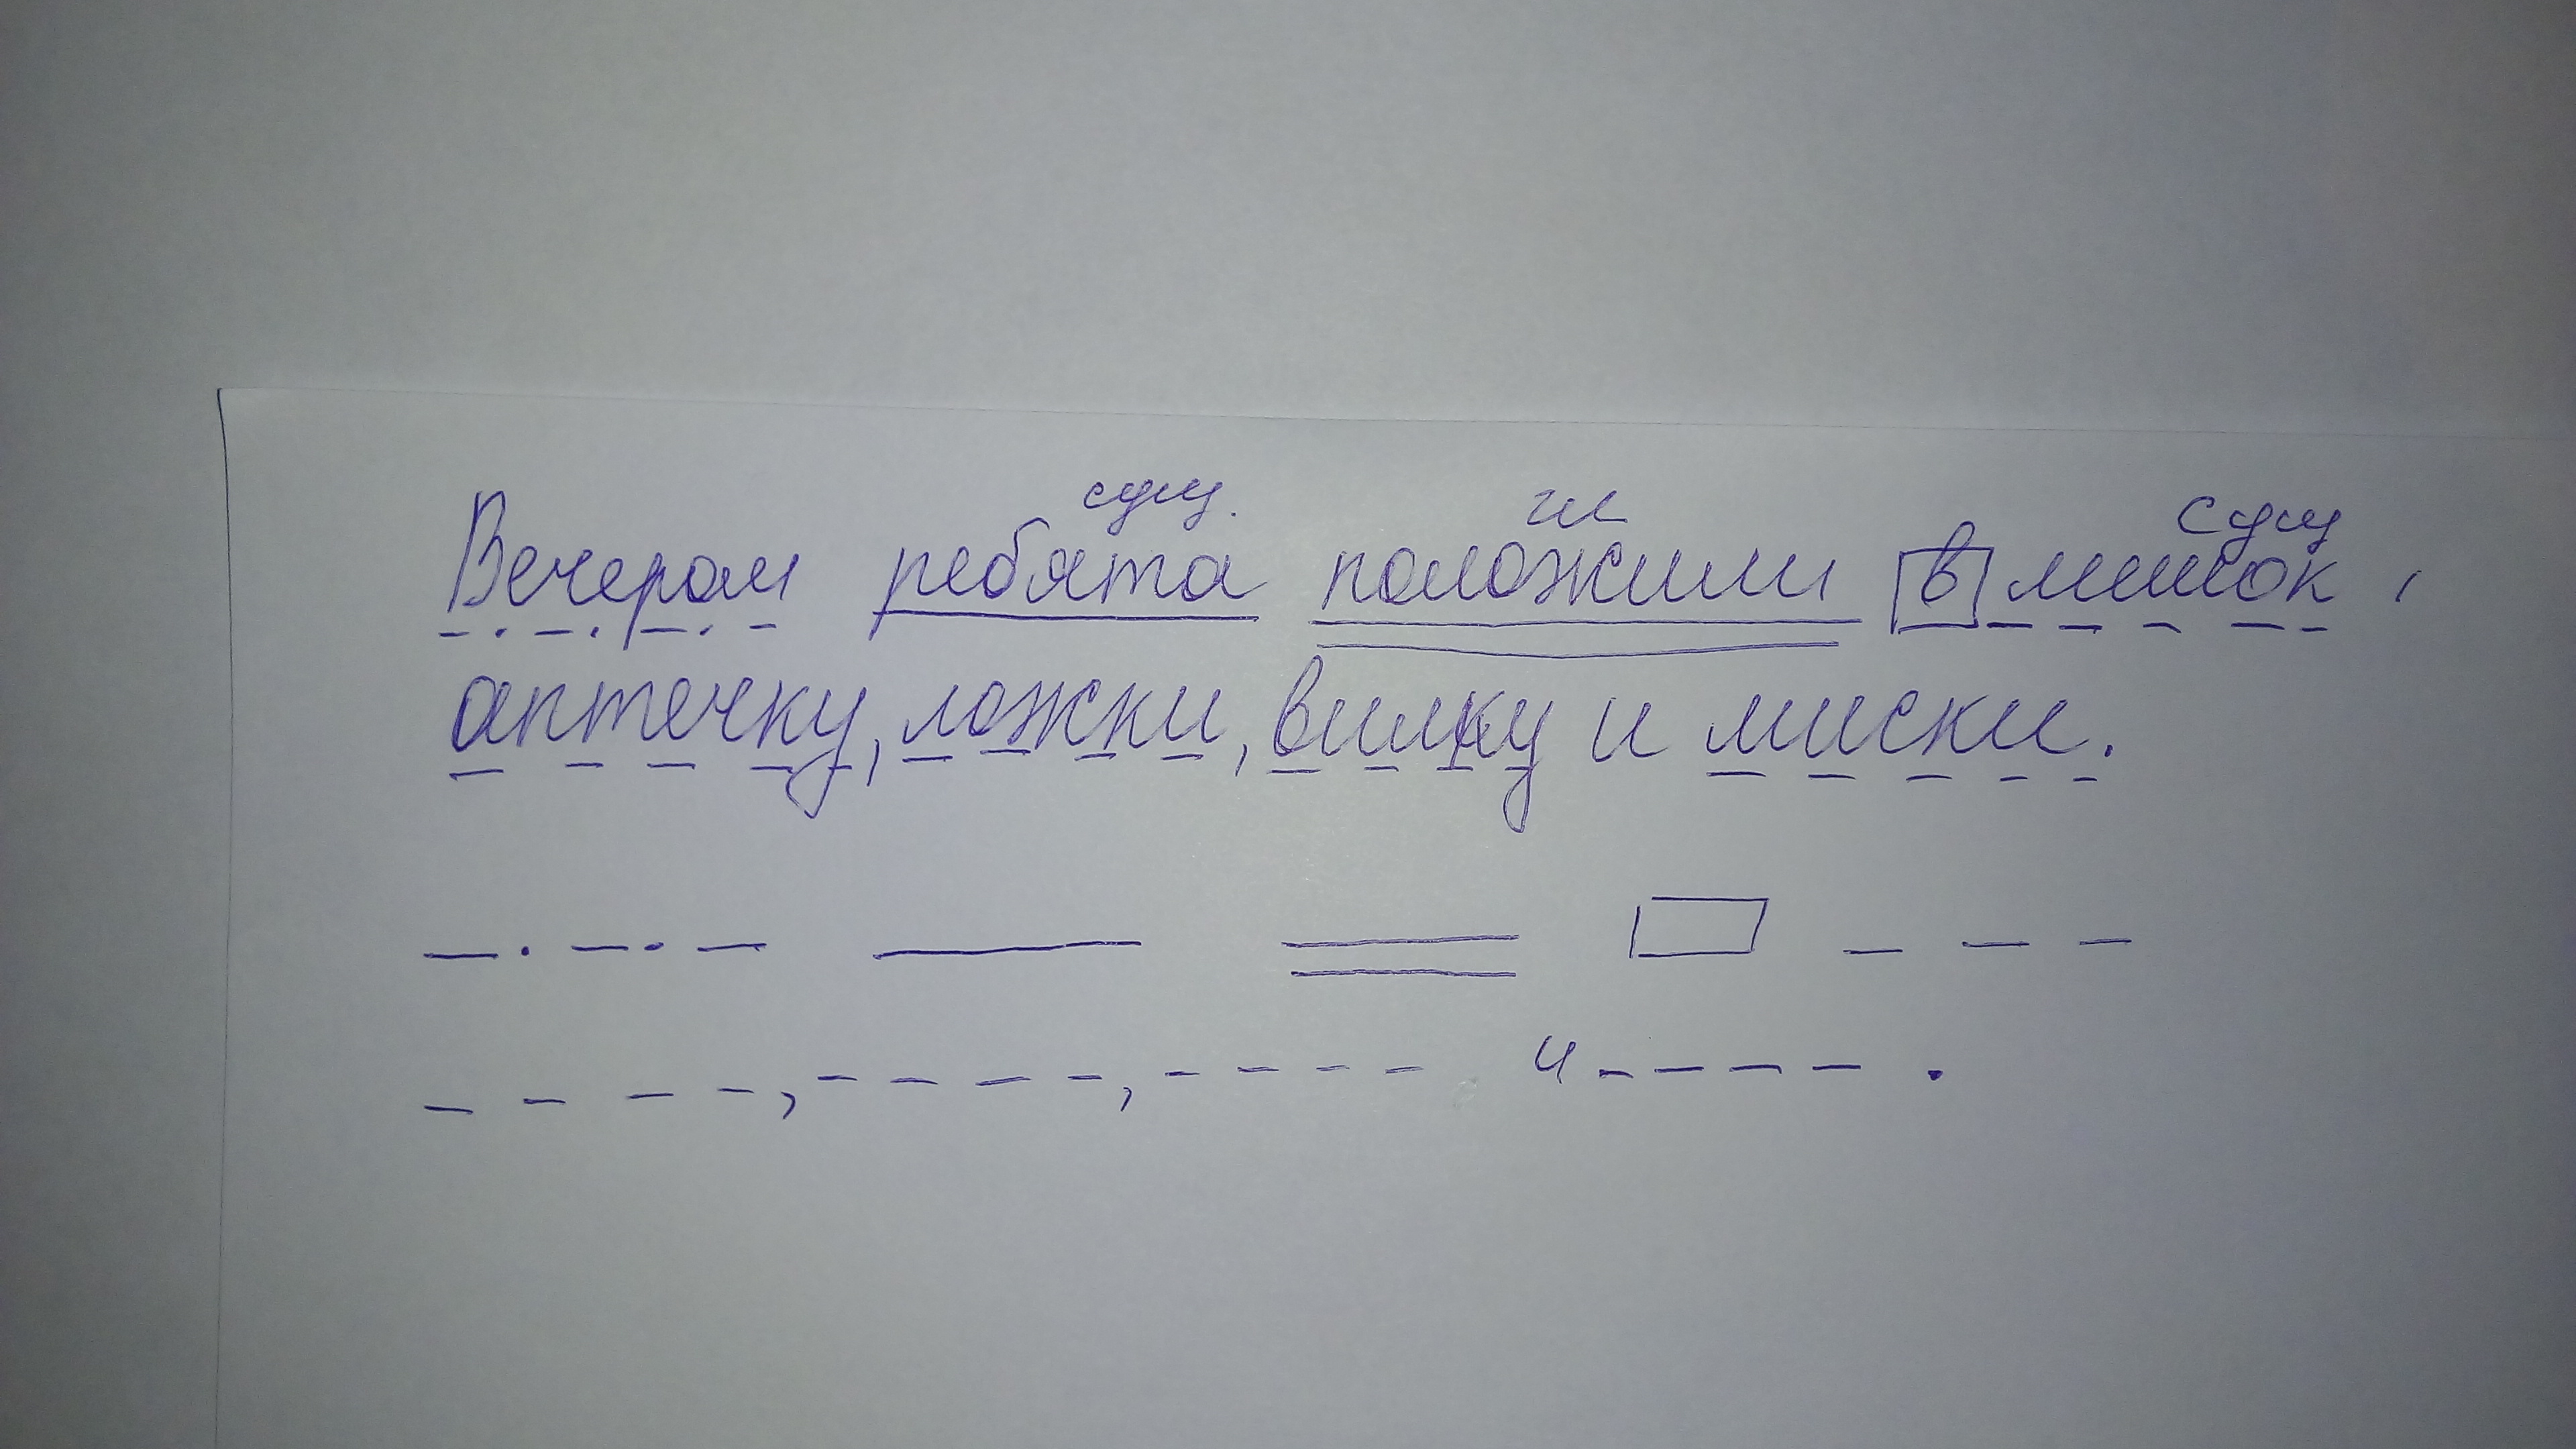 сущ. гл сущ
Вечером ребята положили в мешок,
аптечку, ложки, вилку и миски.
и